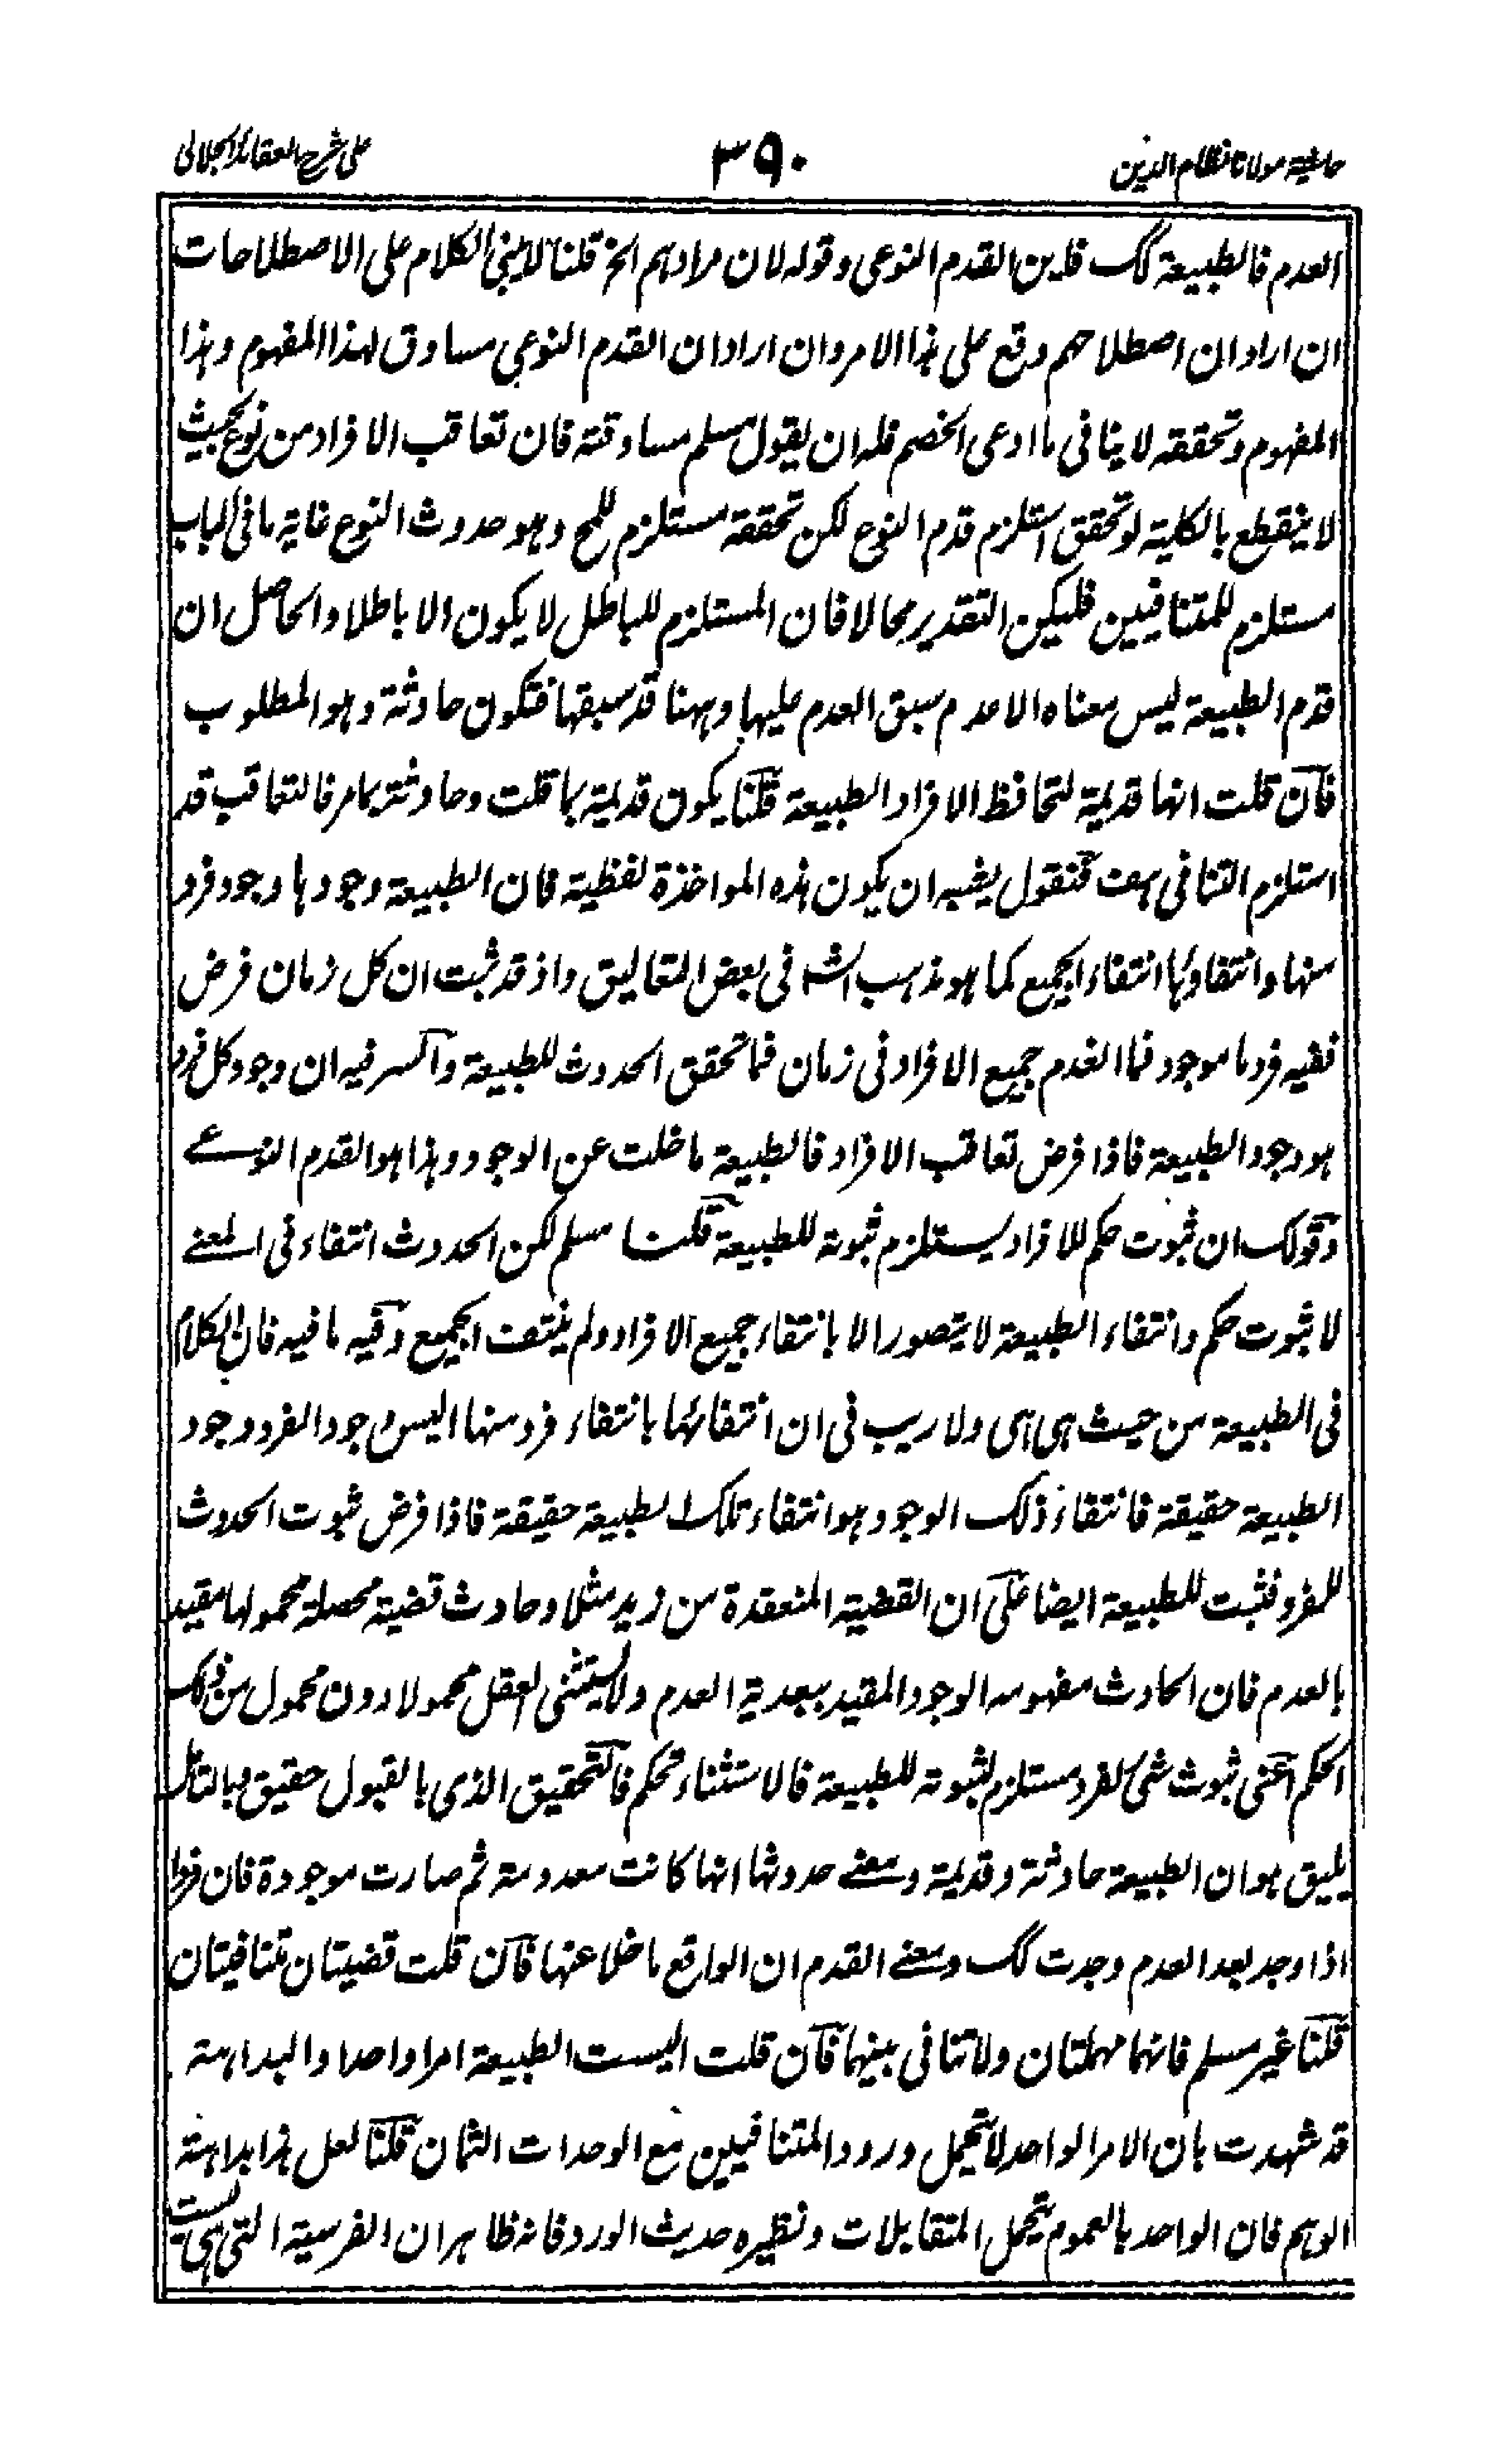 حاشية مولانا نظام الدين
٣٩٠
على شرح العقائد الجلالى
العدم فالطبيعة كك فاين القدم النوعى وقوله لان مرادهم الخ قلنا لا يبنى الكلام على الاصطلاحات
ان اراد ان اصطلاحهم وقع على هذا الامر وان اراد ان القدم النوعى مساوق لهذا المفهوم وهذا
المفهوم وتحققه لا ينافى ما ادعى الخصم فله ان يقول مسلم مساوقته فان تعاقب الافراد من نوع بحيث
لا ينقطع بالكلية لو تحقق استلزم قدم النوع لكن تحققه مستلزم للمح وهو حدوث النوع غاية ما فى الباب
مستلزم للمتنافيين فليكن التقدير محالا فان المستلزم للباطل لا يكون الا باطلا والحاصل ان
قدم الطبيعة ليس معناه الا عدم سبق العدم عليها وههنا قد سبقها فتكون حادثة وهو المطلوب
فان قلت انها قديمة لتحافظ الافراد الطبيعة قلنا يكون قديمة بما قلت وحادثة بما مر فالتعاقب قد
استلزم التنافى هف فنقول يشبه ان يكون هذه المواخذة لفظية فان الطبيعة وجودها وجود فرد
منها وانتفاؤها انتفاء الجميع كما هو مذهب الش فى بعض التعاليق واذ قد ثبت ان كل زمان فرض
ففيه فرد ما موجود فما انعدم جميع الافراد فى زمان فما تحقق الحدوث للطبيعة والسر فيه ان وجود كل فرد
هو وجود الطبيعة فاذا فرض تعاقب الافراد فالطبيعة ما خلت عن الوجود وهذا هو القدم النوعے
وقولك ان ثبوت حكم للافراد يستلزم ثبوته للطبيعة قلنا مسلم لكن الحدوث انتفاء فى المعنے
لا ثبوت حكم وانتفاء الطبيعة لا يتصور الا بانتفاء جميع الافراد ولم ينتف الجميع وفيه ما فيه فان الكلام
فى الطبيعة من حيث هى هى ولا ريب فى ان انتفائها بانتفاء فرد منها اليس وجود الفرد وجود
الطبيعة حقيقة فانتفاء ذلك الوجود هو انتفاء تلك الطبيعة حقيقة فاذا فرض ثبوت الحدوث
للفرد فثبت للطبيعة ايضا على ان القضية المنعقدة من زيد مثلا وحادث قضية محصلة محمولها مقيد
بالعدم فان الحادث مفهومه الوجود المقيد ببعدية العدم ولا يستثنى العقل محمولا دون محمول من ذلك
الحكم اعنى ثبوت شئ لفرد مستلزم لثبوته للطبيعة فالاستثناء تحكم فالتحقيق الذى بالقبول حقيق وبالتأمل
يليق هو ان الطبيعة حادثة وقديمة ومعنے حدوثها انها كانت معدومة ثم صارت موجودة فان فردا
اذا وجد بعد العدم وجدت كك ومعنے القدم ان الواقع ما خلا عنها فان قلت قضيتان متنافيتان
قلنا غير مسلم فانهما مهملتان ولا تنافى بينهما فان قلت اليست الطبيعة امرا واحدا والبداهة
قد شهدت بان الامر الواحد لا يتحمل ورود المتنافيين مع الوحدات الثمان قلنا لعل هذا بداهة
الوهم فان الواحد بالعموم يتحمل المتقابلات ونظيره حديث الورد فانه ظاهر ان الفرسية التى هى ليست